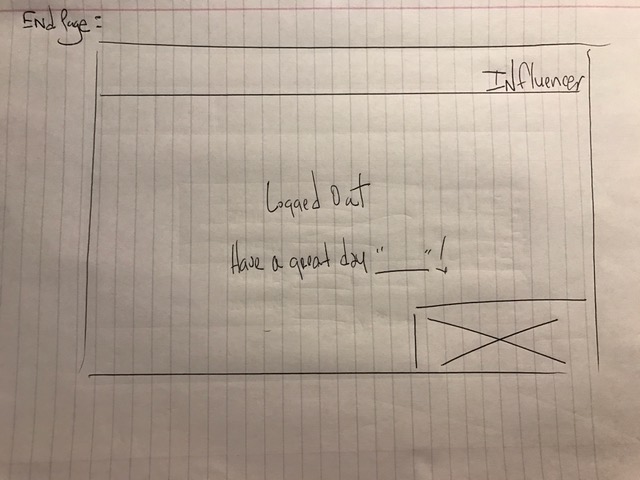 End Page:
Influencer
Logged Out
Have a great day "____"!